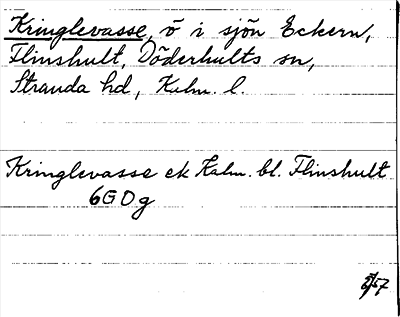 Kringlevasse, ö i sjön Eckern,
Flinshult, Döderhults sn,
Stranda hd, Kalm. l.
Kringlevasse ek Kalm. bl. Flinshult
6G0g